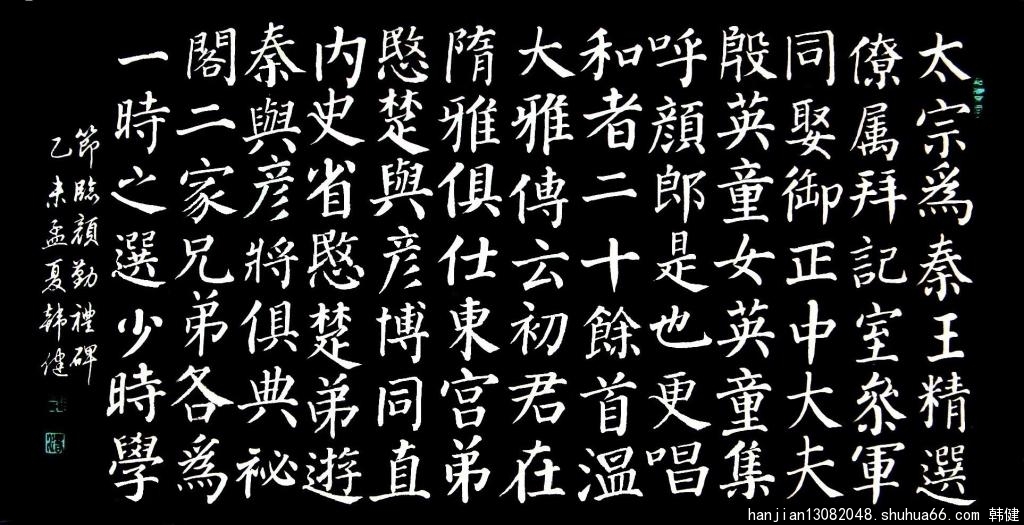 太宗為秦王精選
僚属拜記室叅軍
同娶御正中大夫
殷英童女英童集
呼顔郎是也更唱
和者二十餘首溫
大雅傳云初君在
隋雅俱仕東宫弟
愍楚與彦博同直
内史省愍楚弟遊
秦與彦將俱典祕
閣二家兄弟各為
一時之選少時學
節臨顔勤禮碑
乙未孟夏韩健
hanjian13082048.shuhua66.com 韩健